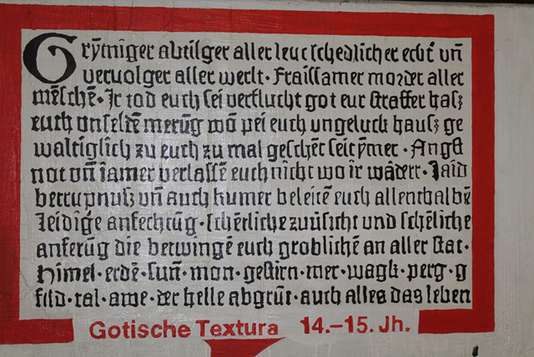 Grymiger abtilger aller leut schedlicher echt vñ
veruolger aller werlt · Fraissamer morder aller
mēschē · Ir tod euch sei verflucht got eur straffer hasz
euch vnseldē merūg wō pei euch ungeluck hausz ge
waltiglich zu euch zu mal geschēt seit ymer · Angst
not vñ iamer verlassē euch nicht wo ir wādert · laid
betrupnusz vñ auch kumer beleitē euch allenthalbē
leidige anfechtūg · schētliche zuūsicht vnd schēliche
anferūg die betwingē euch groblichē an aller stat ·
himel · erde · sun̄ · mon · gestirn · mer · wagk · perg · g
fild · tal · awe · der helle abgrūt · auch alles das leben
Gotische Textura 14.–15. Jh.